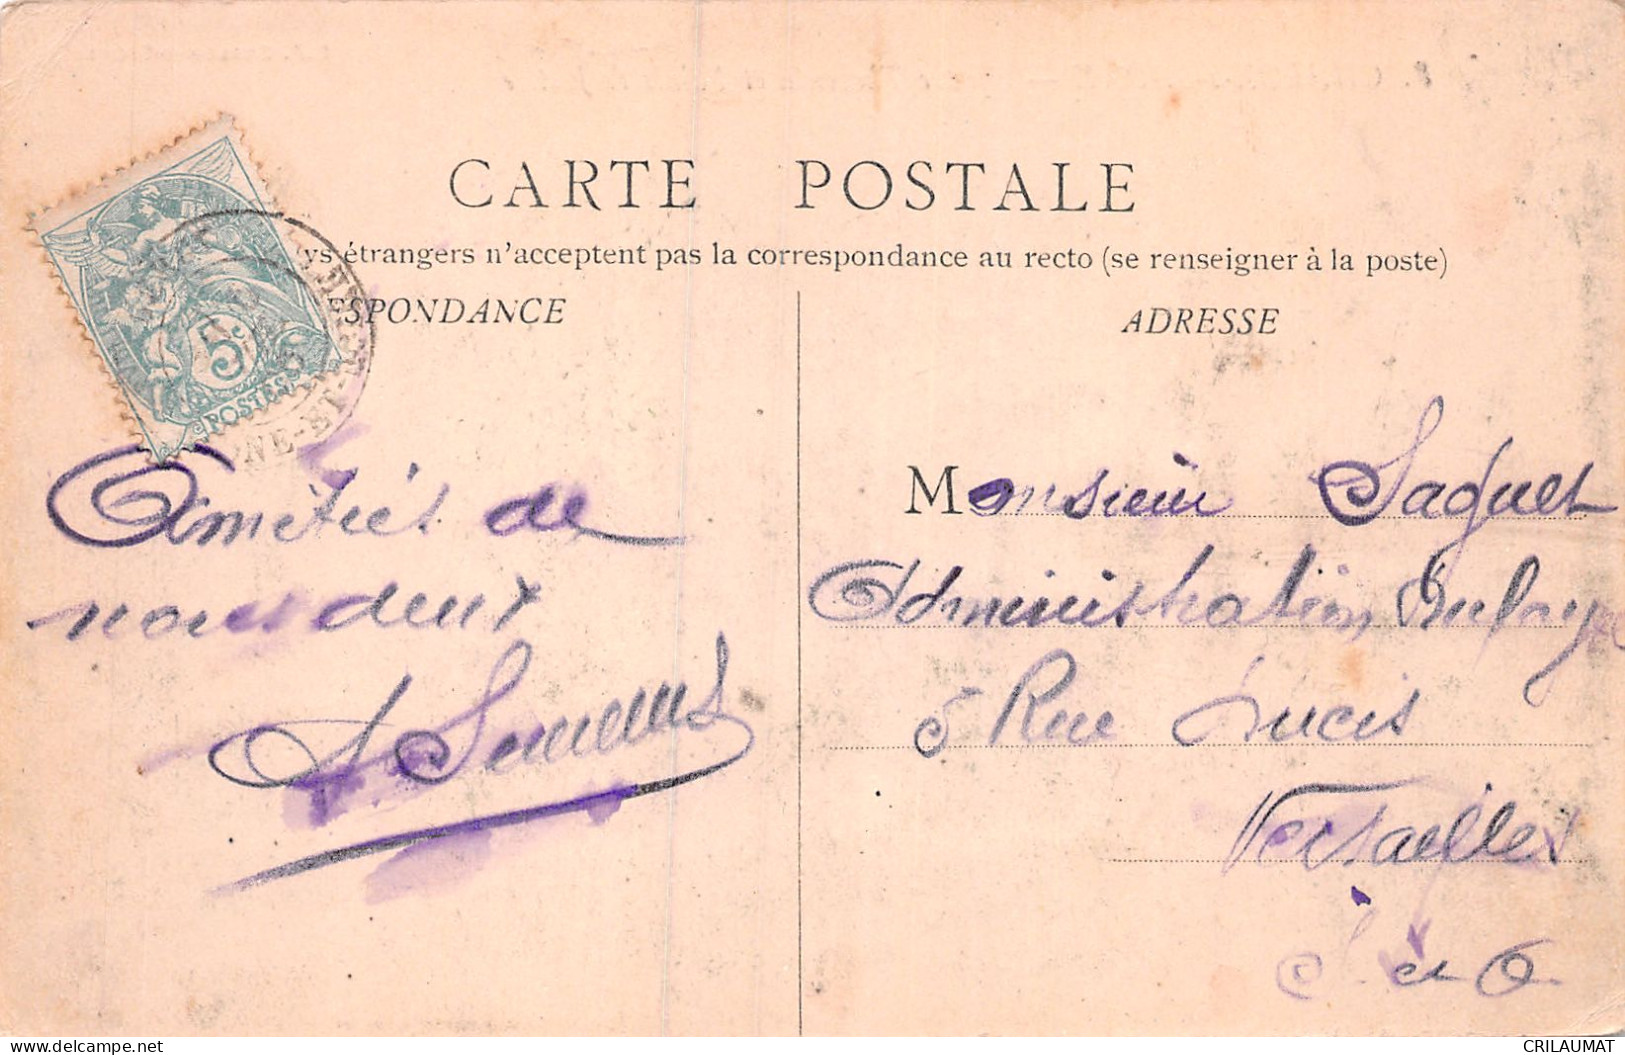 CARTE POSTALE
ys étrangers n'acceptent pas la correspondance au recto (se renseigner à la poste)
ESPONDANCE
ADRESSE
5
POSTES
NE-ET-
Amitiés de
nous deux
Monsieur Saquet
Administration
5 Rue
Versailles
S. et O
CRILAUMAT